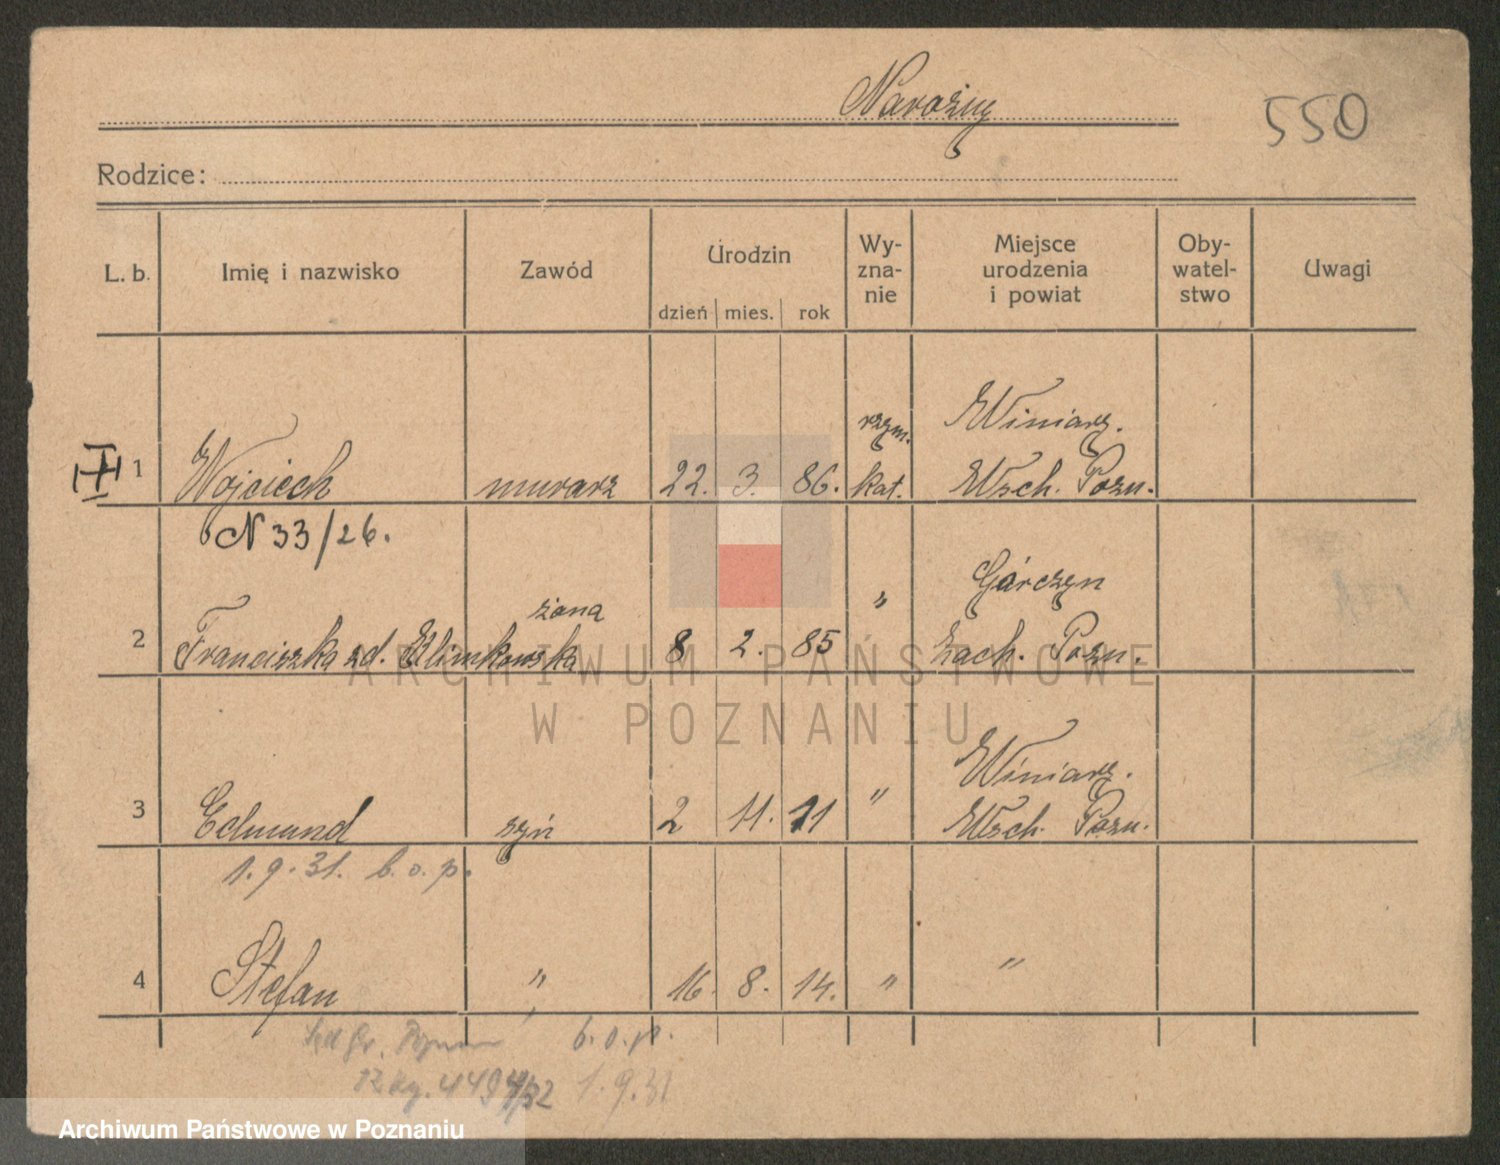 Narożny
550
Rodzice:
L. b.
Imię i nazwisko
Zawód
Urodzin
dzień mies. rok
Wy-
zna-
nie
Miejsce
urodzenia
i powiat
Oby-
watel-
stwo
Uwagi
1 Wojciech murarz 22. 3. 86. rzym. kat. Winiary. Wsch. Pozn.
N 33/26.
2 Franciszka zd. Klimkowska żona 8 2. 85 " Górczyn Zach. Pozn.
3 Edmund syn 2 11. 11 " Winiary. Wsch. Pozn.
1.9.31. b.o.p.
4 Stefan " 16. 8. 14. " "
b.o.p.
1.9.31
ARCHIWUM PAŃSTWOWE
W POZNANIU
Archiwum Państwowe w Poznaniu